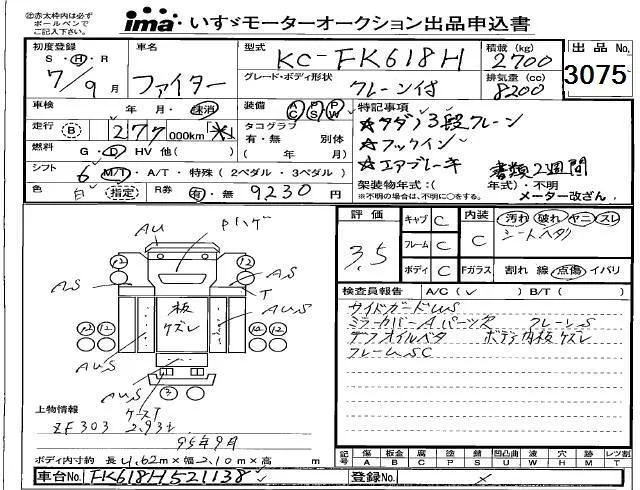 ㊟赤太枠内は必ず
ボールペンで
ご記入下さい。
ima いすゞモーターオークション出品申込書
初度登録 S・H・R
7/9月
車名 ファイター
型式 KC-FK618H
積載(kg) 2700
出品No. 3075
グレード・ボディ形状 クレーン付
排気量(cc) 8200
車検 年 月・抹消
装備 AC PS PW
特記事項
☆タダノ3段クレーン
☆フックイン
☆エアブレーキ
書類2週間
走行 B 277 000km
タコグラフ 有・無 別体
( 年 月)
燃料 G・D HV 他( )
シフト 6 M/T・A/T・特殊(2ペダル・3ペダル)
架装物年式:( 年式)・不明
※不明の場合は、不明に○をする。
メーター改ざん
色 白 指定
R券 有・無 9230円
評価 3.5
キャブ C
フレーム C
ボディ C
内装 C
汚れ 破れ ヤニ ズレ
シートヘタリ
Fガラス 割れ 線 点傷 イバリ
検査員報告 A/C(✓) B/T( )
サイドガードUS
ミラーカバーAパーツ欠 クレーンS
デフオイルベタ ボディ内板ケズレ
フレームSC
AU
Pハゲ
12 12
AS AS
T
板
ケズレ
AUS
12 12 12 12
AUS AUS
3
ケースT
上物情報
ZF303 2.93t
95年9月
ボディ内寸約 長4.62m×巾2.10m×高 m
記号 傷A 板金B 腐C 塗P 錆S 凹凸曲U 波W 穴H 跡M レツ割T
車台No. FK618H521138
登録No.